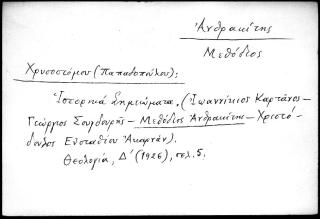 Ἀνθρακίτης
Μεθόδιος
Χρυσοστόμου (Παπαδοπούλου):
Ἱστορικὰ Σημειώματα. (Ἰωαννίκιος Καρτάνος –
Γεώργιος Σουγδουρῆς – Μεθόδιος Ἀνθρακίτης – Χριστό-
δουλος Εὐσταθίου Ἀκαρνάν).
Θεολογία, Δ' (1926), σελ. 5.